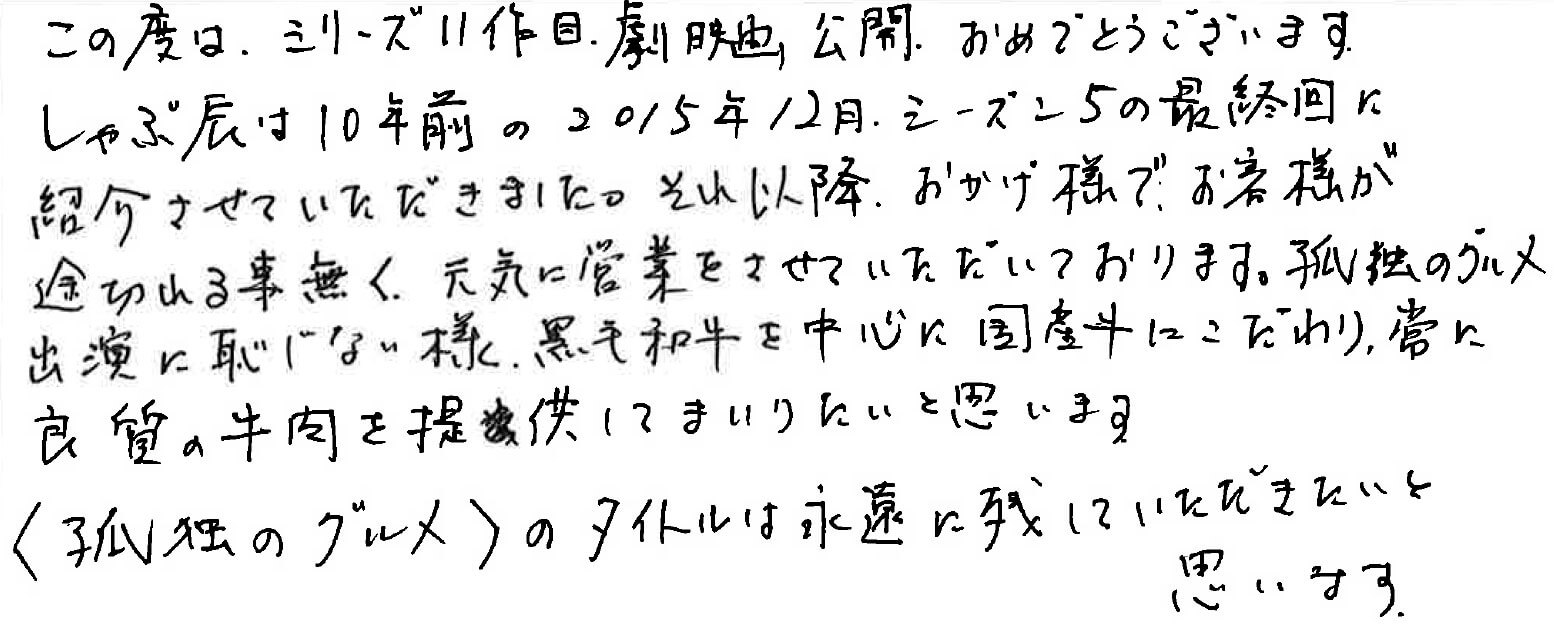 この度は、シリーズ11作目、劇映画、公開、おめでとうございます。
しゃぶ辰は10年前の2015年12月、シーズン5の最終回に
紹介させていただきました。それ以降、おかげ様で、お客様が
途切れる事無く、元気に営業をさせていただいております。孤独のグルメ
出演に恥じない様、黒毛和牛を中心に国産牛にこだわり、常に
良質の牛肉を提供してまいりたいと思います
〈孤独のグルメ〉のタイトルは永遠に残していただきたいと
思います。